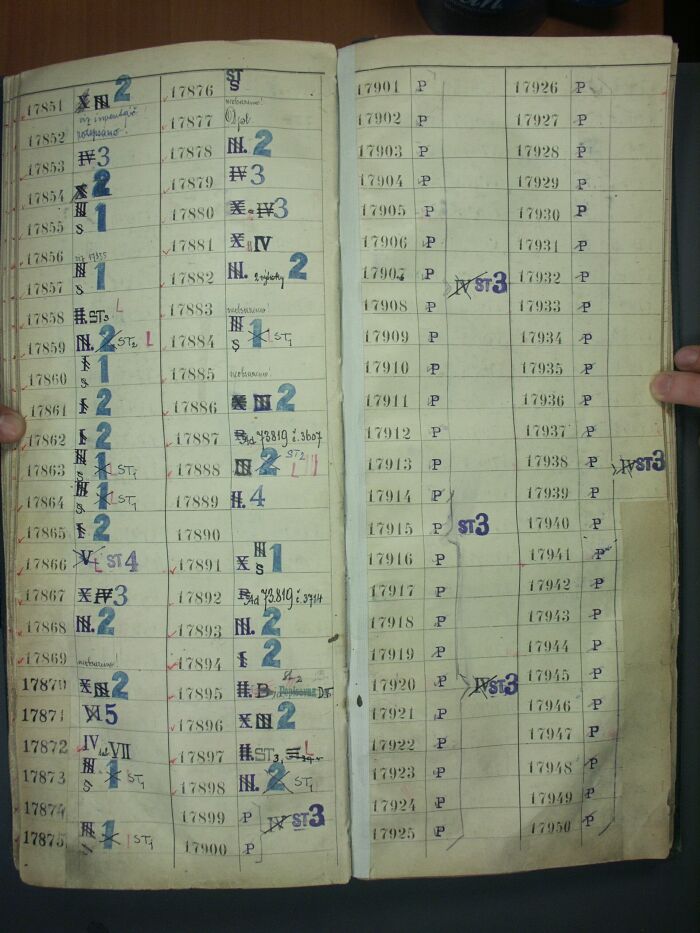 17851 X III 2
17852
17853 IV 3
17854 X 2
17855 III S 1
17856 viz 17855
17857 III S 1
17858 II. ST3 L
17859 III. 2 ST2 L
17860 I S 1
17861 I 2
17862 I 2
17863 III S 1 ST1
17864 III S 1 ST1
17865 I 2
17866 V ST 4
17867 X IV 3
17868 III. 2
17869 neobsazeno!
17870 X III 2
17871 VI 5
17872 IV VII
17873 III S 1 ST1
17874
17875 III S 1 ST1
17876 ST S
17877 neobsazeno!
17878 III. 2
17879 IV 3
17880 X IV 3
17881 X IV
17882 III. 2 výtisky 2
17883 neobsazeno!
17884 III S 1 ST1
17885 neobsazeno!
17886 X III 2
17887 P Ad 73819 č. 3607
17888 III 2 ST2 L
17889 II. 4
17890
17891 X III S 1
17892 P Ad 73.819 č. 3714
17893 III. 2
17894 I 2
17895 II. B
17896 X III 2
17897 II. ST3, L
17898 III. 2 ST1
17899 P IV ST3
17900 P
17901 P
17902 P
17903 P
17904 P
17905 P
17906 P
17907 P IV ST3
17908 P
17909 P
17910 P
17911 P
17912 P
17913 P
17914 P
17915 P ST3
17916 P
17917 P
17918 P
17919 P
17920 P IV ST3
17921 P
17922 P
17923 P
17924 P
17925 P
17926 P
17927 P
17928 P
17929 P
17930 P
17931 P
17932 P
17933 P
17934 P
17935 P
17936 P
17937 P
17938 P IV ST3
17939 P
17940 P
17941 P
17942 P
17943 P
17944 P
17945 P
17946 P
17947 P
17948 P
17949 P
17950 P